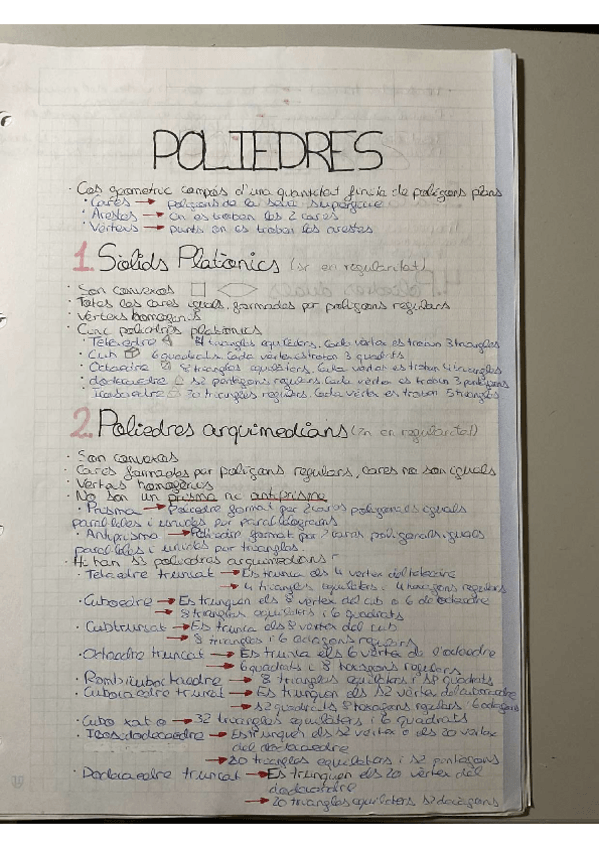 POLIEDRES
· Cos geomètric compòs d'una quantitat finita de polígons plans
· Cares → polígons de la seva superfície
· Arestes → on es troban les 2 cares
· Vèrtexs → punts on es troban les arestes
1. Sòlids Platònics (1r en regularitat)
· Son convexos
· Totes les cares iguals, formades per polígons regulars
· Vèrtexs homogenis
· Cinc poliedres platònics
· Tetraedre 4 triangles equilàters. Cada vèrtex es troban 3 triangles
· Cub 6 quadrats. Cada vèrtex es troban 3 quadrats
· Octaedre 8 triangles equilàters. Cada vèrtex es troban 4 triangles
· dodecaedre 12 pentàgons regulars. Cada vèrtex es troban 3 pentàgons
· Icosaedre 20 triangles regulars. Cada vèrtex es troban 5 triangles
2. Poliedres arquimedians (2n en regularitat)
· Son convexos
· Cares formades per polígons regulars, cares no son iguals
· Vèrtexs homogenis
· No son un prisma ni antiprisma
· Prisma → Poliedre format per 2 cares poligonals iguals
paral·leles i unides per paral·lelograms
· Antiprisma → Poliedre format per 2 cares poligonals iguals
paral·leles i unides per triangles.
· Hi han 13 poliedres arquimedians:
· Tetraedre truncat → Es trunca els 4 vèrtex del tetraedre
→ 4 triangles equilàters i 4 hexàgons regulars
· Cuboctaedre → Es trunquen els 8 vèrtex del cub o 6 de octaedre
→ 8 triangles equilàters i 6 quadrats
· Cub truncat → Es trunca els 8 vèrtex del cub
→ 8 triangles i 6 octàgons regulars
· Octaedre truncat → Es trunca els 6 vèrtex de l'octaedre
→ 6 quadrats i 8 hexàgons regulars
· Rombicuboctaedre → 8 triangles equilàters i 18 quadrats
· Cuboctaedre truncat → Es trunquen els 12 vèrtex del cuboctaedre
→ 12 quadrats 8 hexàgons regulars i 6 octàgons
· Cubo xato → 32 triangles equilàters i 6 quadrats
· Icosidodecaedre → Es trunquen els 12 vèrtex o els 20 vèrtex
del dodecaedre
→ 20 triangles equilàters i 12 pentàgons
· Dodecaedre truncat → Es trunquen els 20 vèrtex del
dodecaedre
→ 20 triangles equilàters 12 decàgons